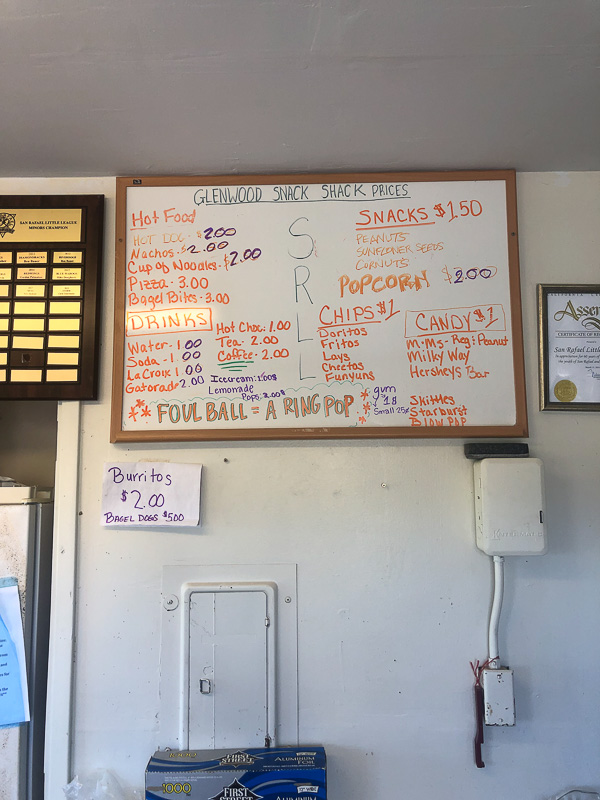 GLENWOOD SNACK SHACK PRICES
Hot Food
HOT DOG - $2.00
Nachos - $2.00
Cup of Noodles - $2.00
Pizza - 3.00
Bagel Bites - 3.00
DRINKS
Water - 1.00
Soda - 1.00
LaCroix 1.00
Gatorade 2.00
Hot Choc: 1.00
Tea - 2.00
Coffee - 2.00
Icecream: 1.00
Lemonade
Pops: 2.00
S
R
L
L
SNACKS $1.50
PEANUTS
SUNFLOWER SEEDS
CORNUTS
POPCORN $2.00
CHIPS $1
Doritos
Fritos
Lays
Cheetos
Funyuns
CANDY $1
M-Ms - Reg: Peanut
Milky Way
Hersheys Bar
Skittles
Starburst
BLOW POP
gum
Small 25¢
FOUL BALL = A RING POP
Burritos
$2.00
BAGEL DOGS $5.00
SAN RAFAEL LITTLE LEAGUE
MINORS CHAMPION
Assem
CERTIFICATE OF RE
San Rafael Little
1000
FIRST
STREET
ALUMINUM
FOIL
1000
FIRST
STREET
ALUMINUM